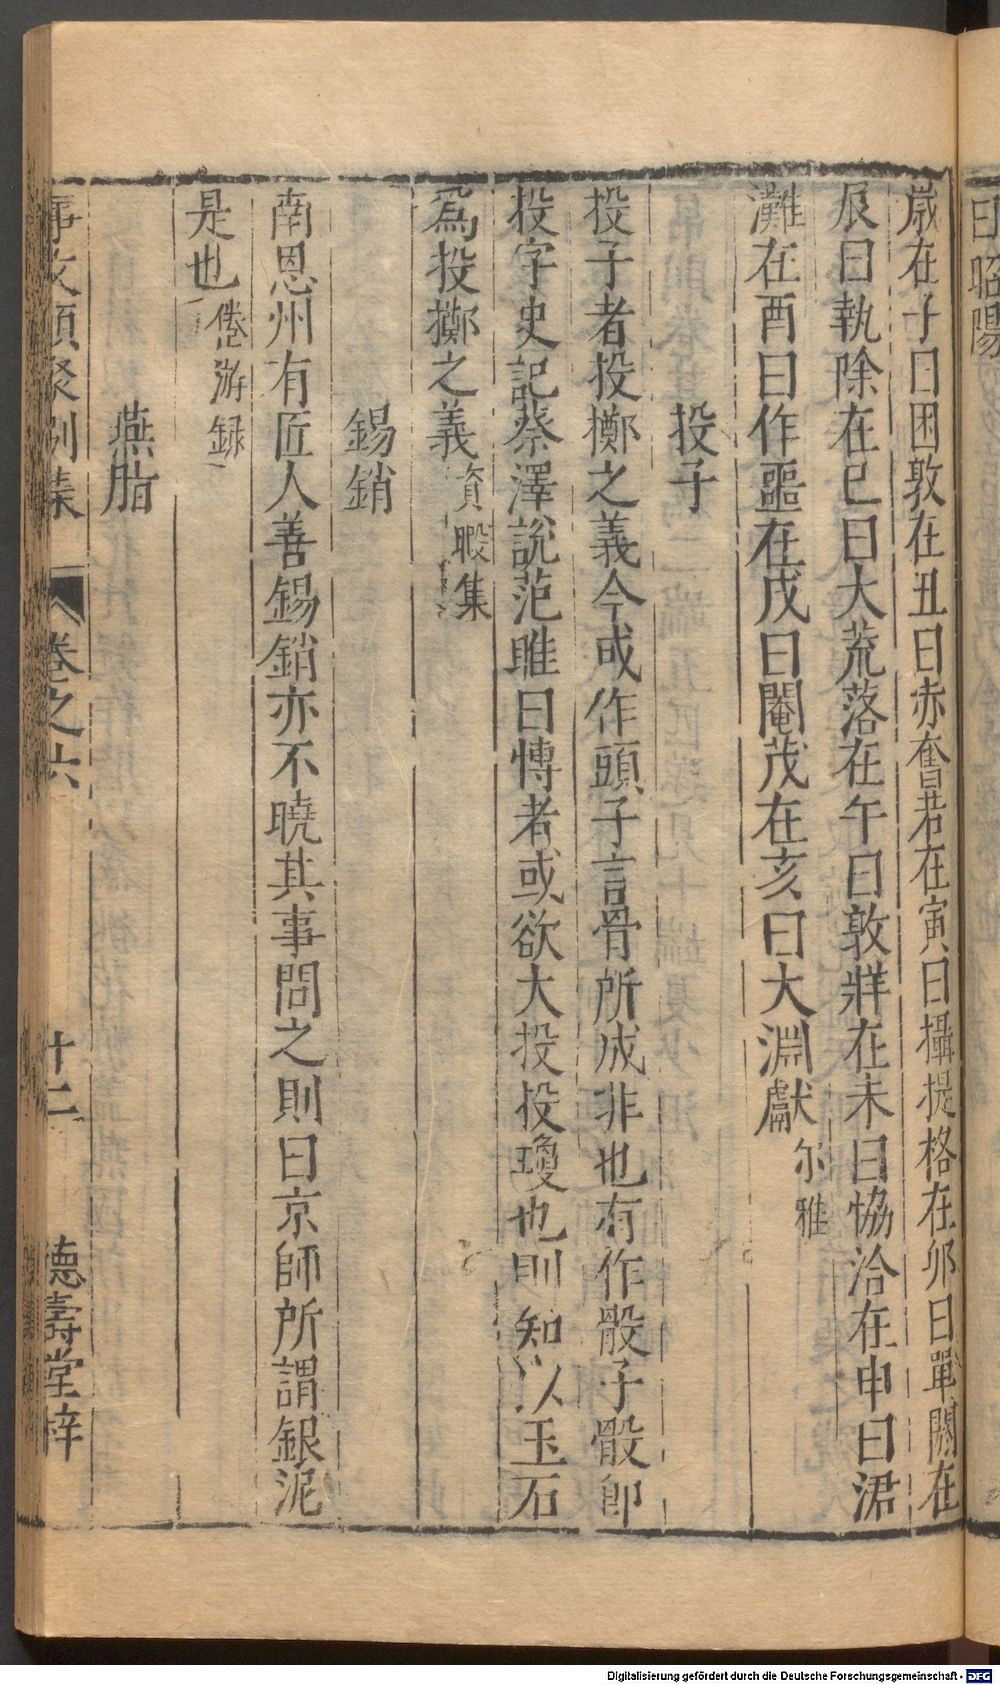 曰昭陽
歲在子曰困敦在丑曰赤奮若在寅曰攝提格在卯曰單閼在
辰曰執除在巳曰大荒落在午曰敦牂在未曰恊洽在申曰涒
灘在酉曰作噩在戌曰閹茂在亥曰大淵獻尔雅
投子
投子者投擲之義今或作頭子言骨所成非也有作骰子骰即
投字史記蔡澤說范雎曰慱者或欲大投投瓊也則知以玉石
爲投擲之義資暇集
錫銷
南恩州有匠人善錫銷亦不曉其事問之則曰京師所謂銀泥
是也倦游録
燕脂
事文類聚別集 卷之六 十二 德壽堂梓
Digitalisierung gefördert durch die Deutsche Forschungsgemeinschaft - DFG